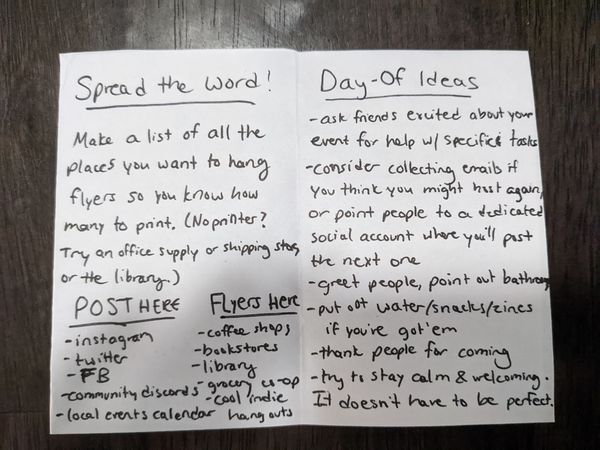 Spread the Word!
Make a list of all the
places you want to hang
flyers so you know how
many to print. (No printer?
Try an office supply or shipping store,
or the library.)
POST HERE
- instagram
- twitter
- FB
- community discords
- local events calendar
Flyers Here
- coffee shops
- bookstores
- library
- grocery co-op
- cool indie
hangouts
Day-Of Ideas
- ask friends excited about your
event for help w/ specific tasks
- consider collecting emails if
you think you might host again,
or point people to a dedicated
social account where you'll post
the next one
- greet people, point out bathroom
- put out water/snacks/zines
if you've got 'em
- thank people for coming
- try to stay calm & welcoming.
It doesn't have to be perfect.